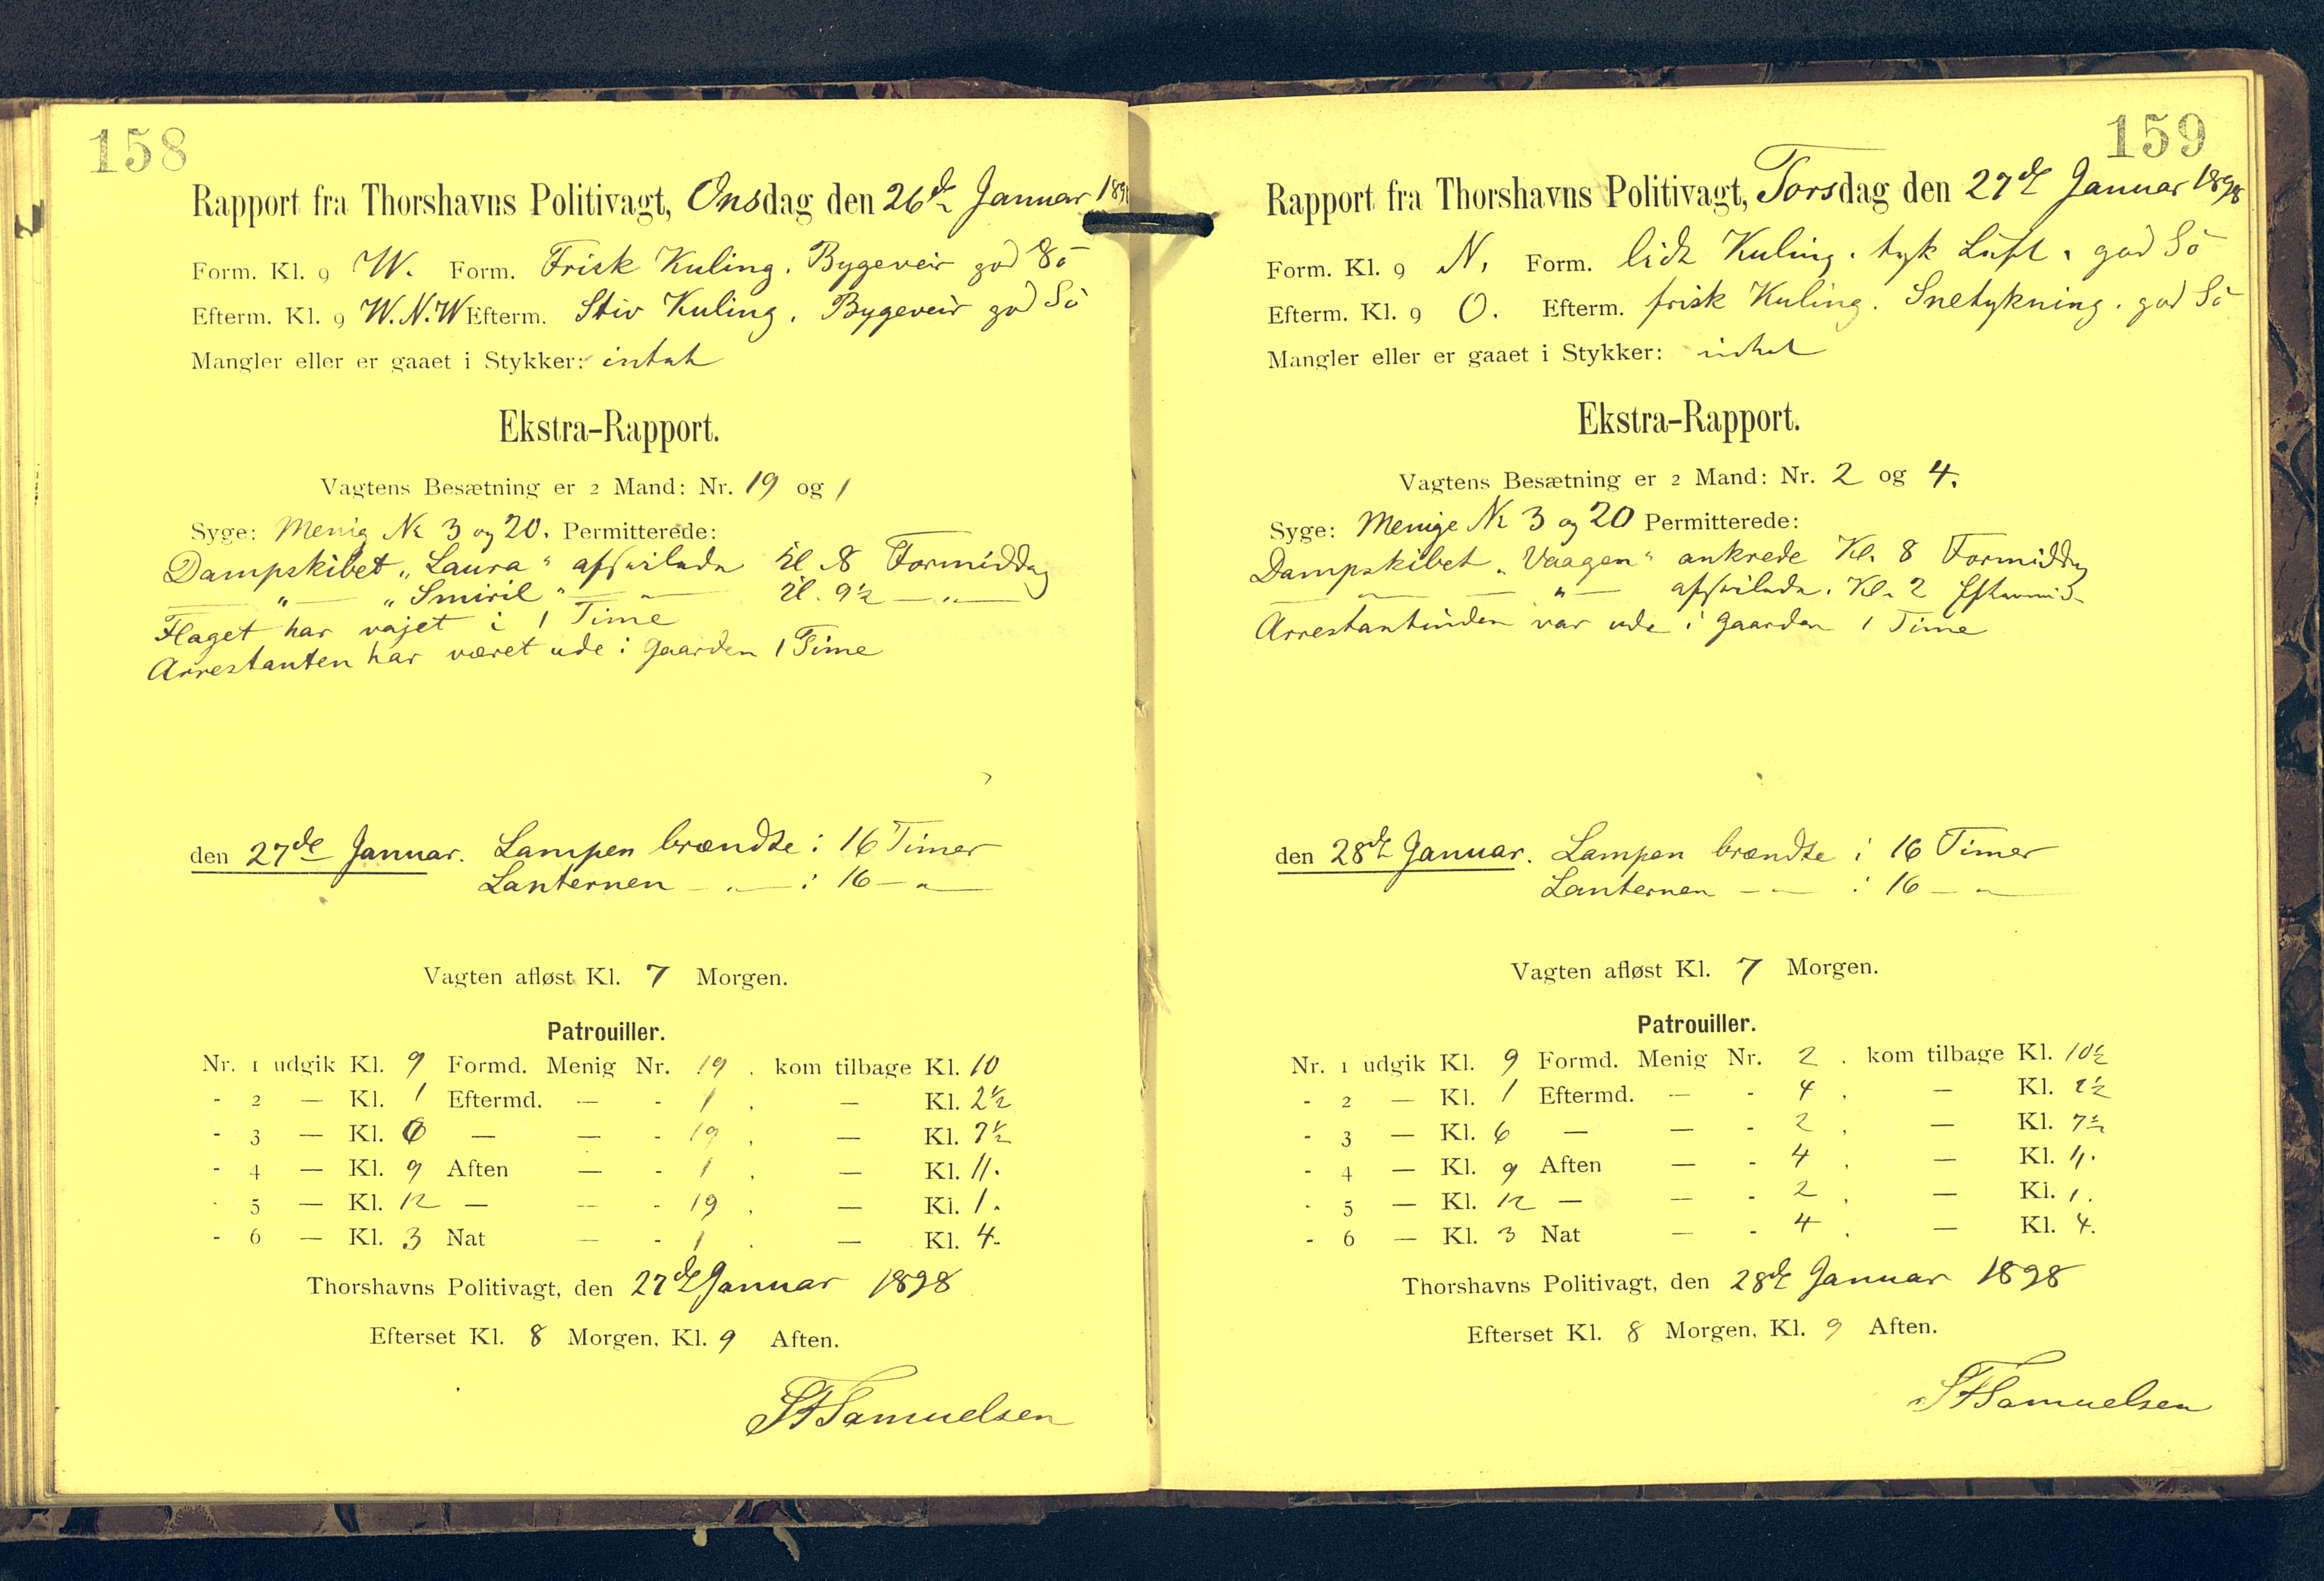 158
Rapport fra Thorshavns Politivagt, Onsdag den 26de Januar 1898
Form. Kl. 9 W. Form. Frisk Kuling. Bygeveir god Sö
Efterm. Kl. 9 W.N.W Efterm. Stiv Kuling. Bygeveir god Sö
Mangler eller er gaaet i Stykker: intet
Ekstra-Rapport.
Vagtens Besætning er 2 Mand: Nr. 19 og 1
Syge: Menig Nr 3 og 20. Permitterede:
Dampskibet „Laura" afseilede Kl. 8 Formiddag
—„— „Smiril" —„— Kl. 9½ —„—
Flaget har vajet i 1 Time
Arrestanten har været ude i Gaarden 1 Time
den 27de Januar. Lampen brændte i 16 Timer
Lanternen —„— i 16 —„—
Vagten afløst Kl. 7 Morgen.
Patrouiller.
Nr. 1 udgik Kl. 9 Formd. Menig Nr. 19 . kom tilbage Kl. 10
- 2 — Kl. 1 Eftermd. — - 1 . — Kl. 2½
- 3 — Kl. 6 — — - 19 . — Kl. 7½
- 4 — Kl. 9 Aften — - 1 . — Kl. 11.
- 5 — Kl. 12 — — - 19 . — Kl. 1.
- 6 — Kl. 3 Nat — - 1 . — Kl. 4.
Thorshavns Politivagt, den 27de Januar 1898
Efterset Kl. 8 Morgen, Kl. 9 Aften.
Samuelsen
159
Rapport fra Thorshavns Politivagt, Torsdag den 27de Januar 1898
Form. Kl. 9 N. Form. lidt Kuling. tyk Luft. god Sö
Efterm. Kl. 9 O. Efterm. frisk Kuling. Snetykning. god Sö
Mangler eller er gaaet i Stykker: intet
Ekstra-Rapport.
Vagtens Besætning er 2 Mand: Nr. 2 og 4.
Syge: Menige Nr 3 og 20 Permitterede:
Dampskibet „Vaagen" ankrede Kl. 8 Formiddag
—„— —„— afseilede. Kl. 2 Eftermid-
Arrestantinden var ude i Gaarden 1 Time
den 28de Januar. Lampen brændte i 16 Timer
Lanternen —„— i 16 —„—
Vagten afløst Kl. 7 Morgen.
Patrouiller.
Nr. 1 udgik Kl. 9 Formd. Menig Nr. 2 . kom tilbage Kl. 10½
- 2 — Kl. 1 Eftermd. — - 4 . — Kl. 2½
- 3 — Kl. 6 — — - 2 . — Kl. 7½
- 4 — Kl. 9 Aften — - 4 . — Kl. 11.
- 5 — Kl. 12 — — - 2 . — Kl. 1.
- 6 — Kl. 3 Nat — - 4 . — Kl. 4.
Thorshavns Politivagt, den 28de Januar 1898
Efterset Kl. 8 Morgen, Kl. 9 Aften.
Samuelsen